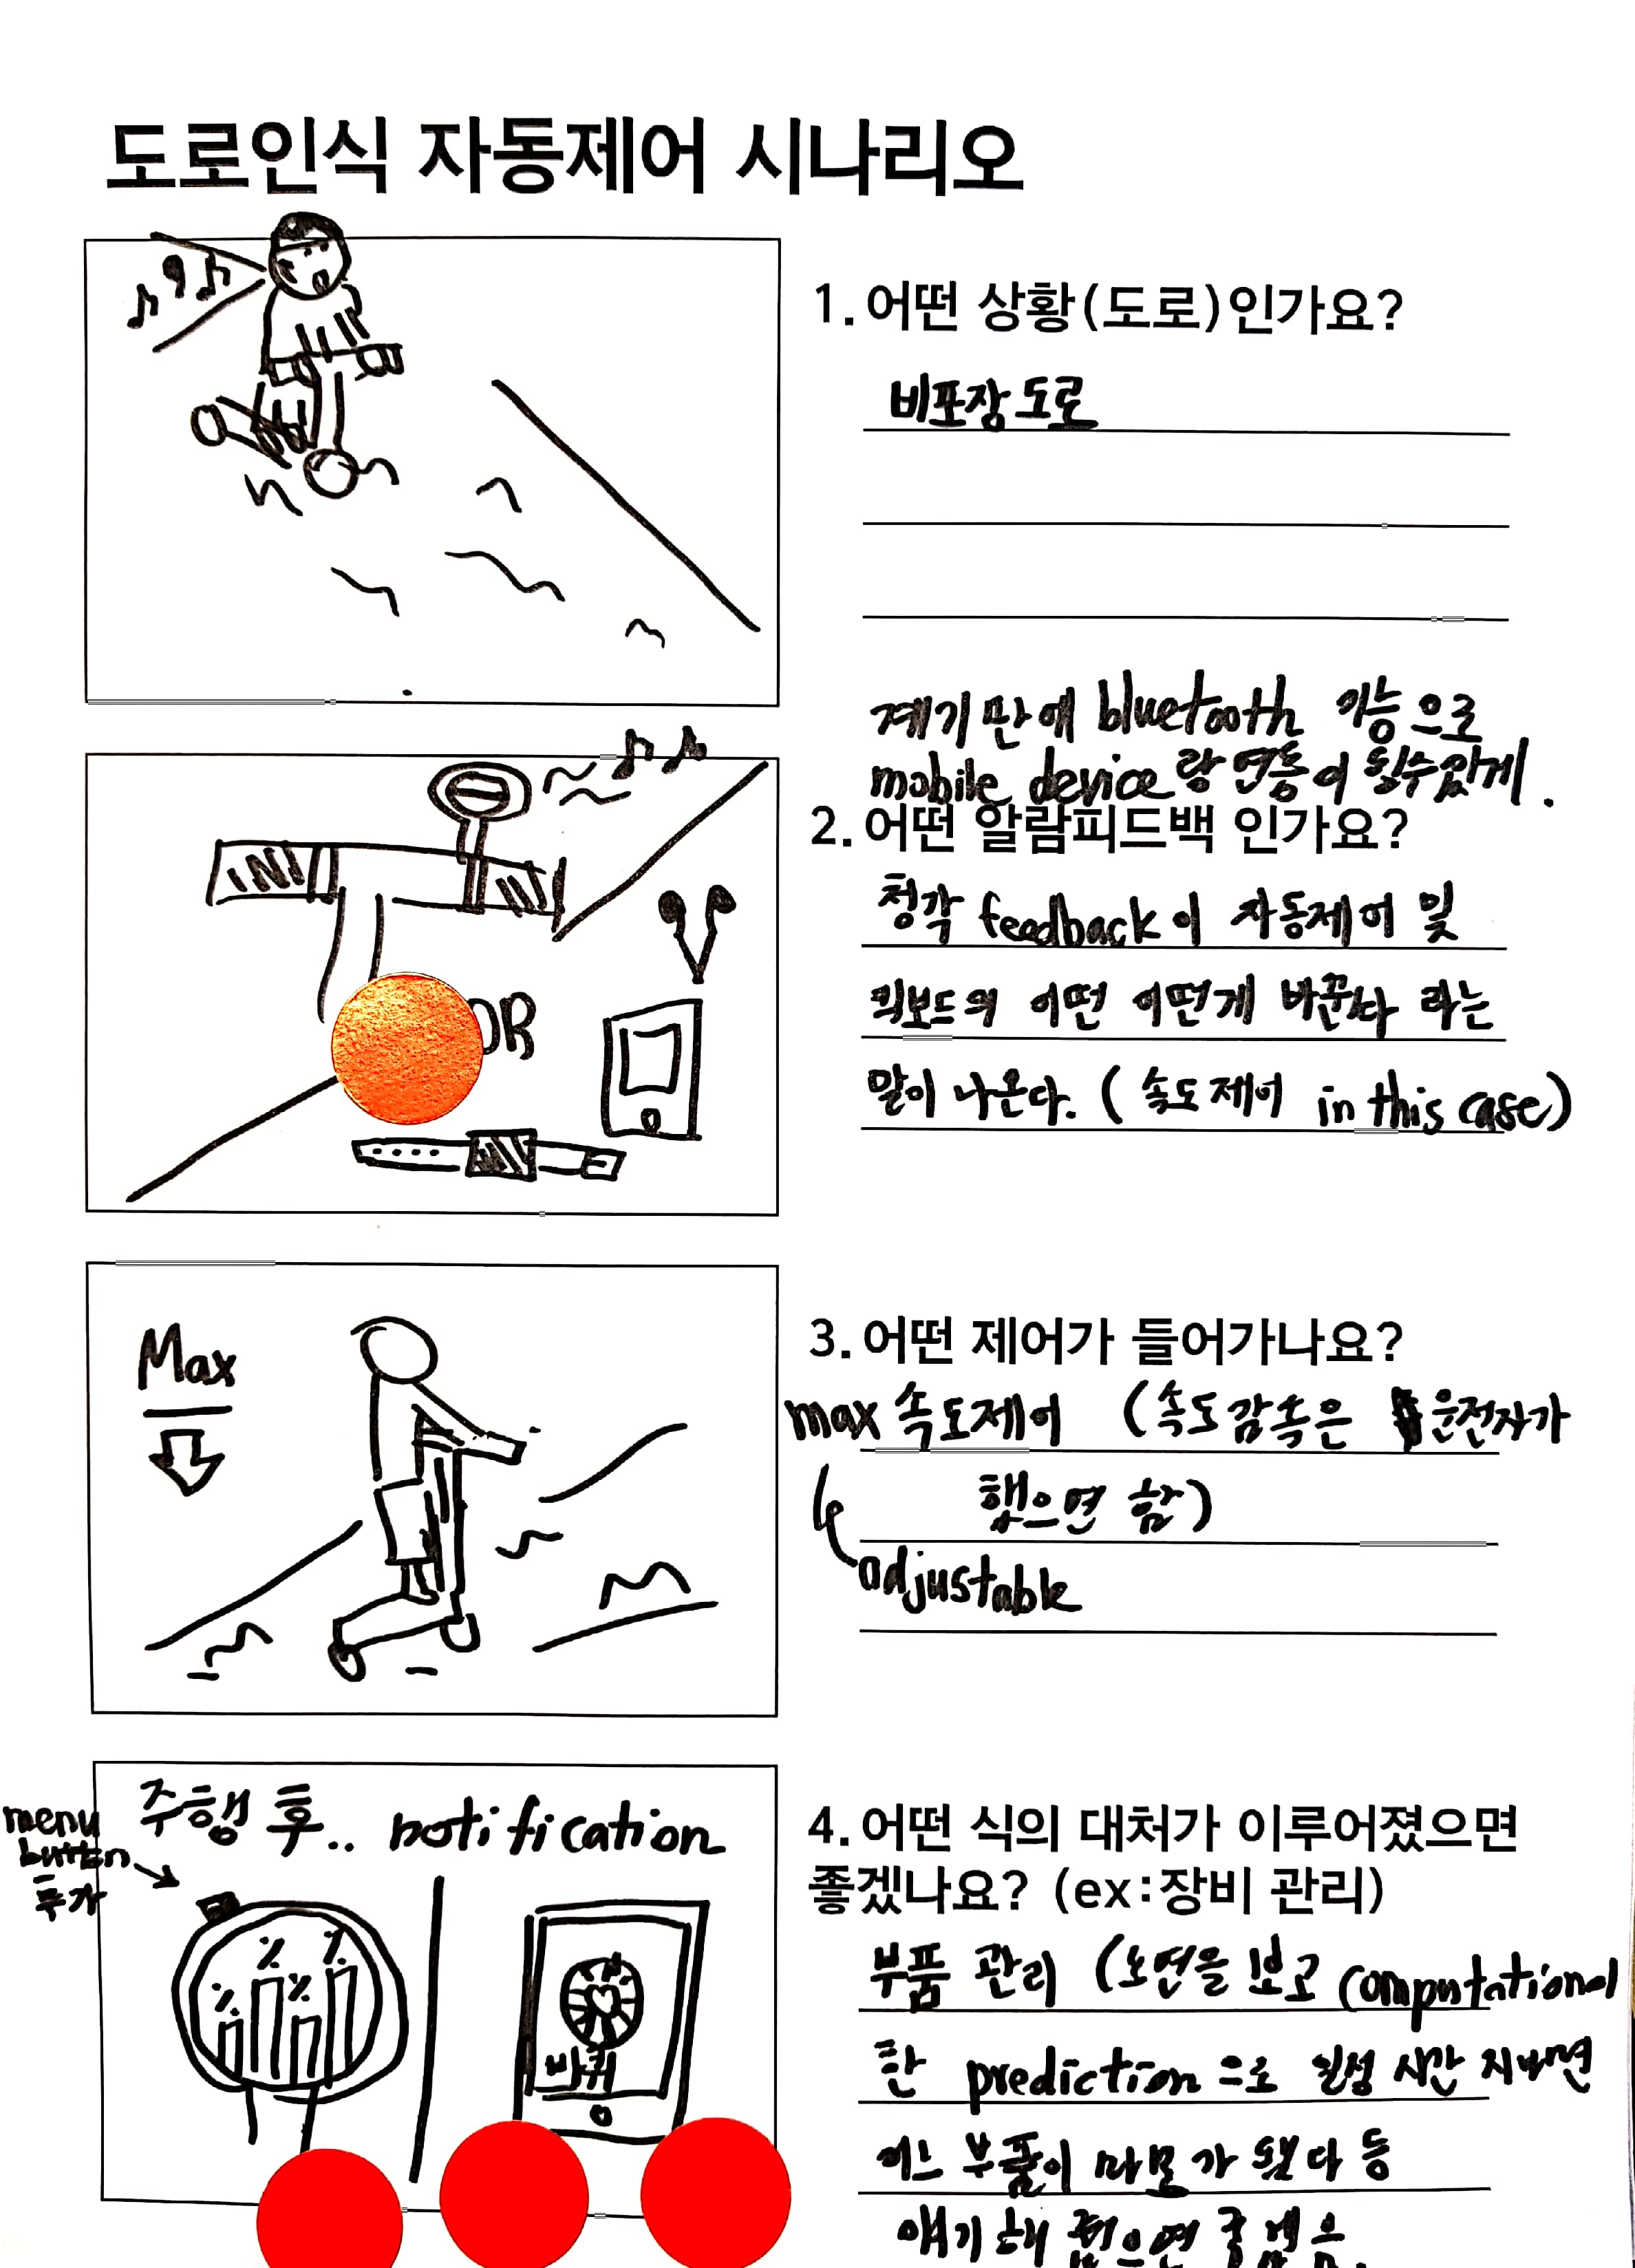 도로인식 자동제어 시나리오
1. 어떤 상황(도로)인가요?
비포장도로
계기판에 bluetooth 기능으로
mobile device랑 연동이 될수있게.
2. 어떤 알람피드백 인가요?
청각 feedback이 자동제어 및
킥보드의 어떤 어떤게 바뀐다 라는
말이 나온다. (속도제어 in this case)
OR
Max
3. 어떤 제어가 들어가나요?
max 속도제어 (속도감속은 운전자가
했으면 함)
adjustable
주행 후.. notification
menu
button
추가
% % % %
바퀴
4. 어떤 식의 대처가 이루어졌으면
좋겠나요? (ex:장비 관리)
부품 관리 (노면을 보고 computational
한 prediction으로 일정 시간 지나면
어느 부품이 마모가 됐다 등
얘기해 줬으면 좋겠음.